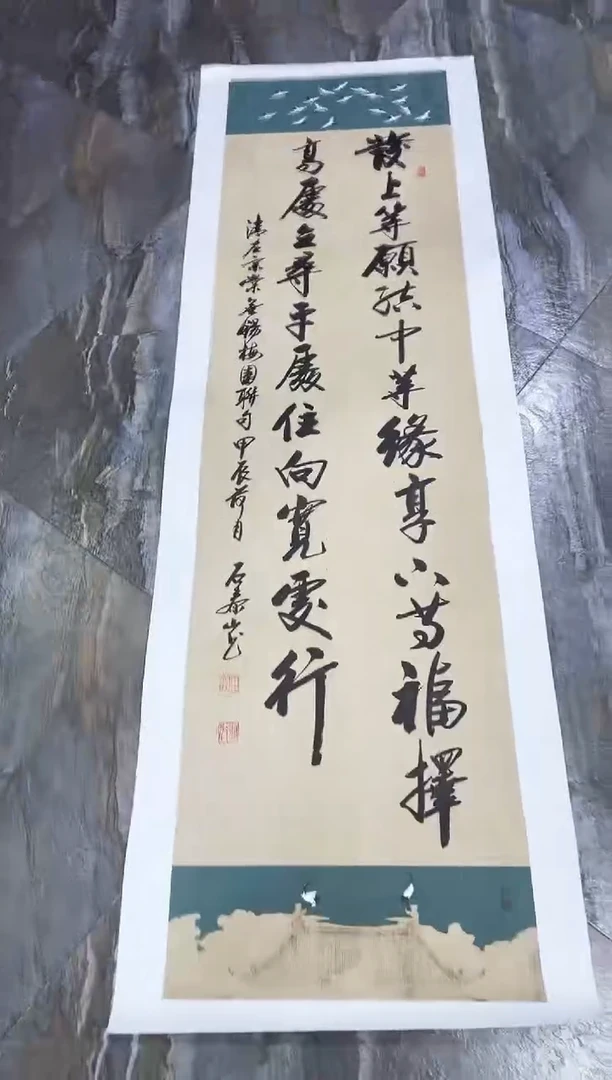 發上等願結中等緣享下等福擇
高處立尋平處住向寬處行
清左宗棠無錫梅園聯句甲辰荷月 石泰山书